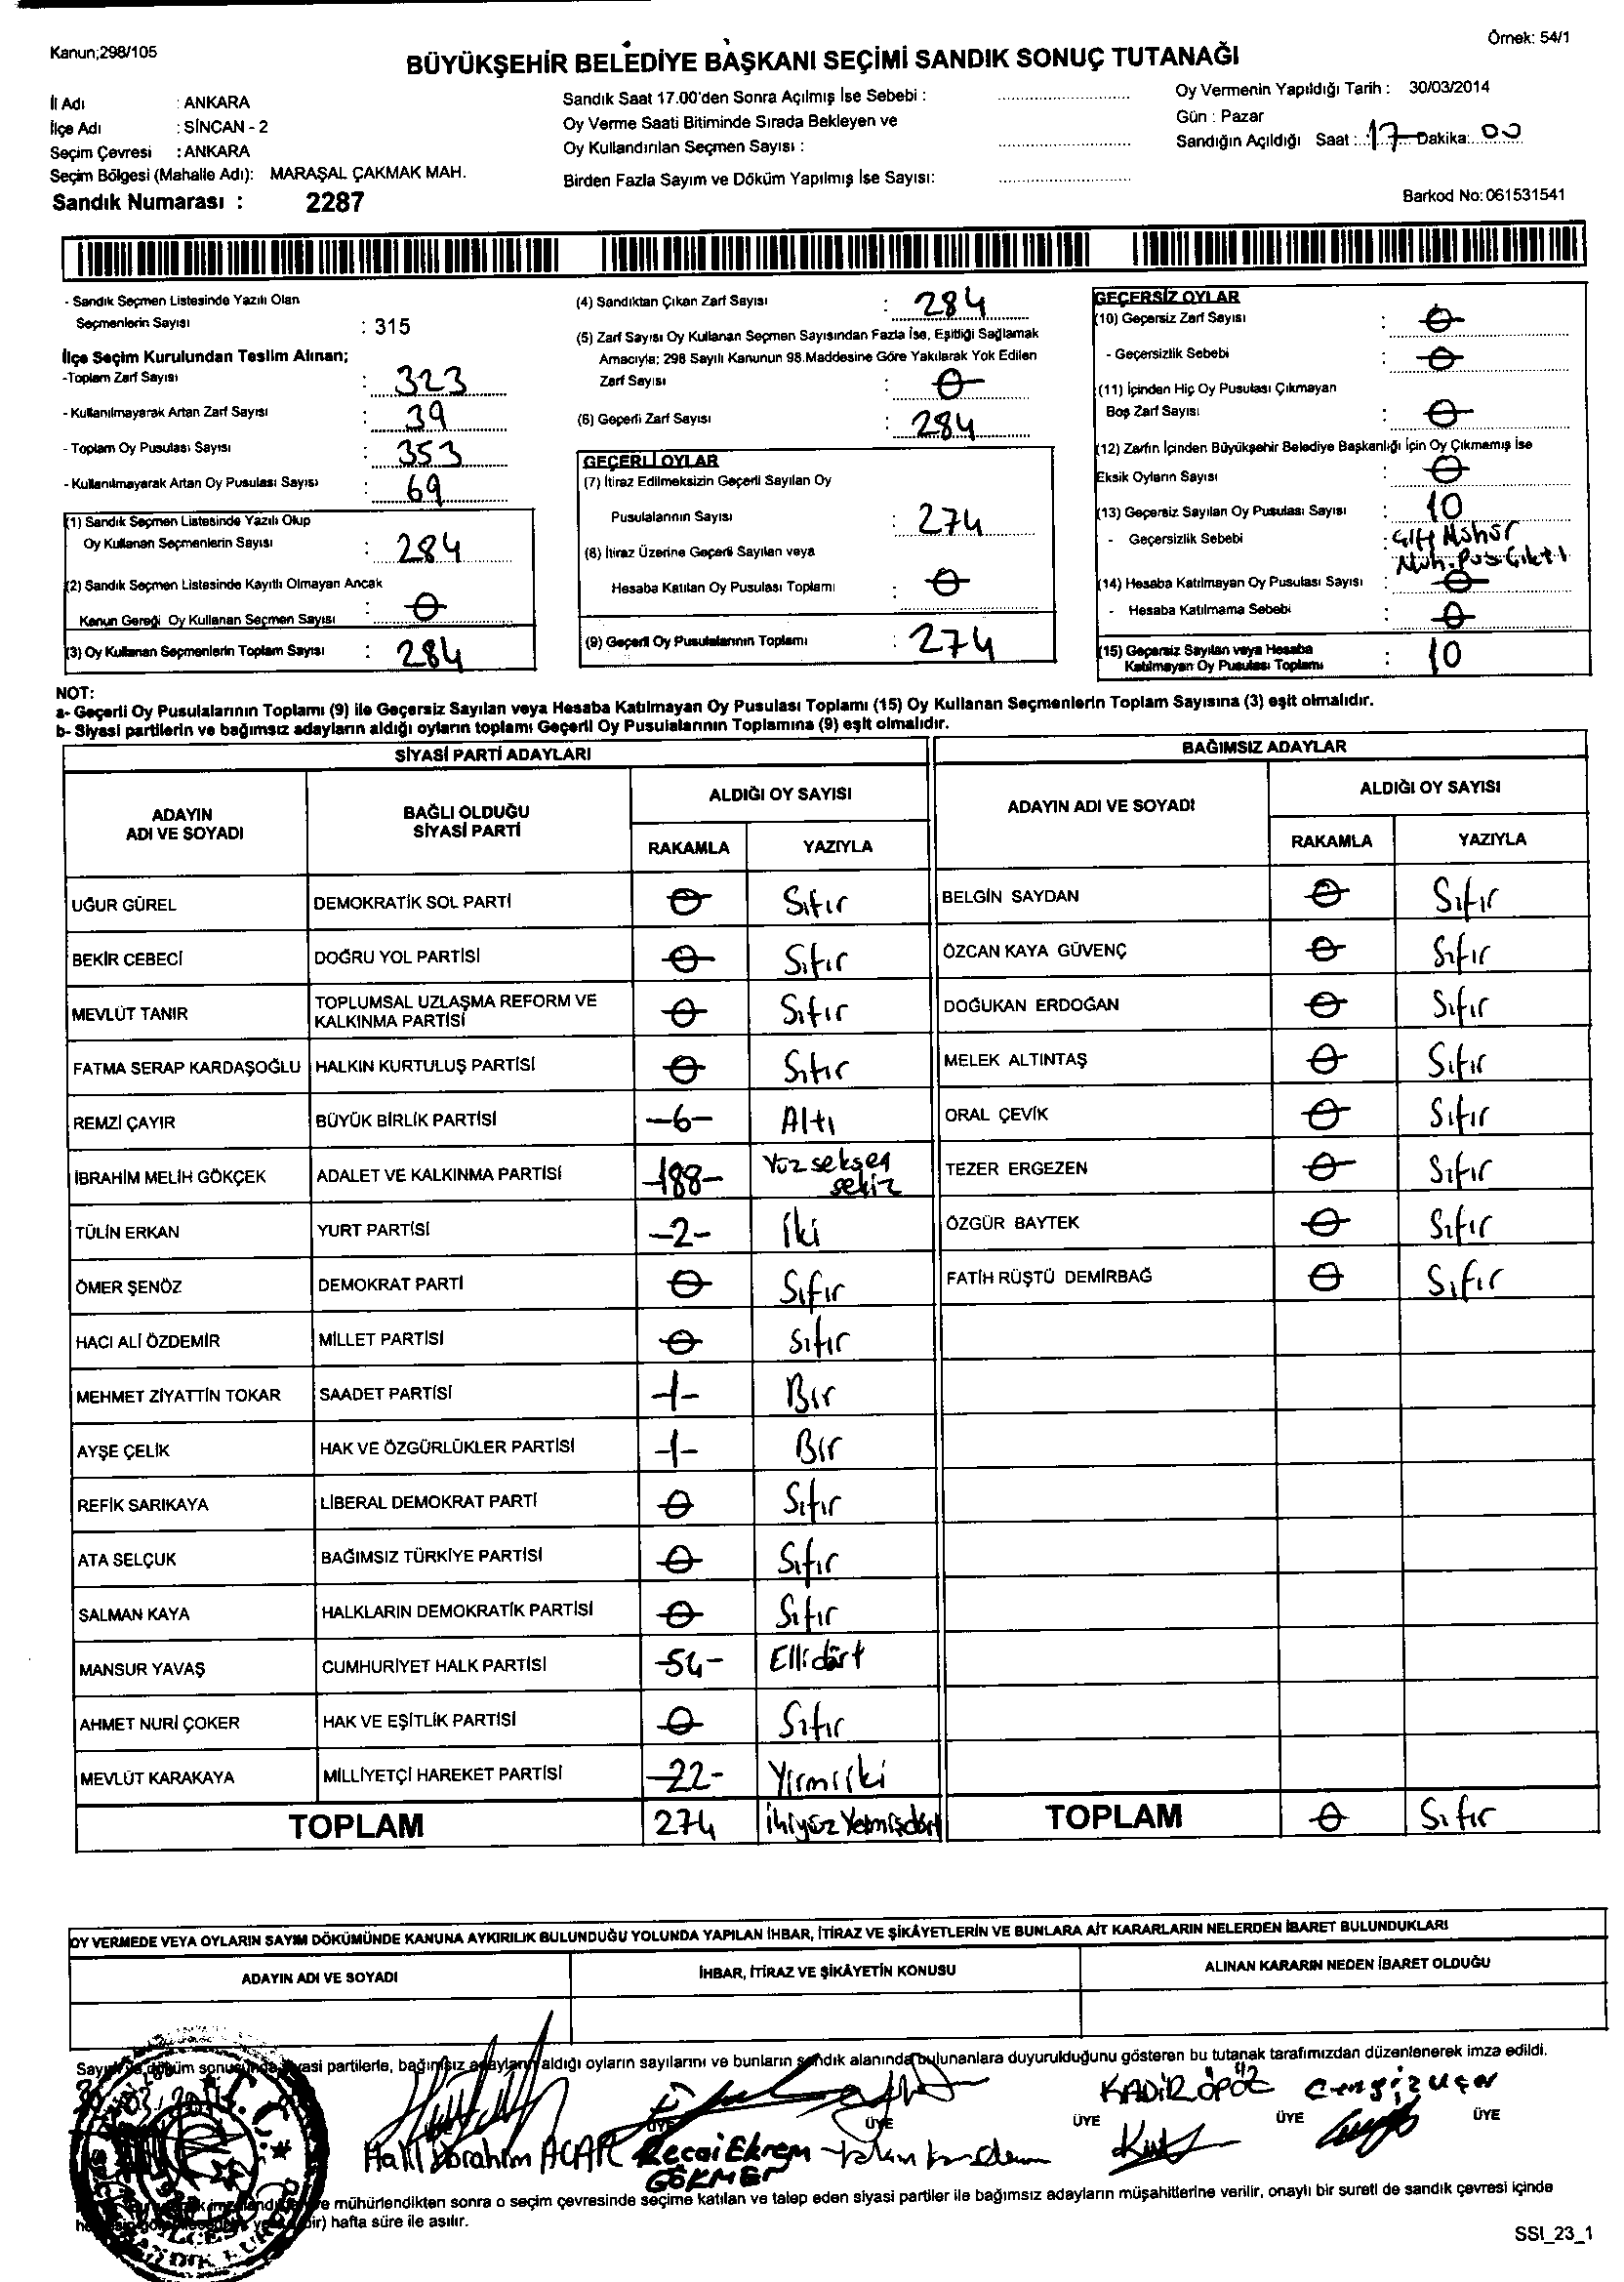 Kanun;298/105
Örnek: 54/1
BÜYÜKŞEHİR BELEDİYE BAŞKANI SEÇİMİ SANDIK SONUÇ TUTANAĞI
İl Adı : ANKARA
İlçe Adı : SİNCAN - 2
Seçim Çevresi : ANKARA
Seçim Bölgesi (Mahalle Adı): MARAŞAL ÇAKMAK MAH.
Sandık Numarası : 2287
Sandık Saat 17.00'den Sonra Açılmış İse Sebebi :
Oy Verme Saati Bitiminde Sırada Bekleyen ve
Oy Kullandırılan Seçmen Sayısı :
Birden Fazla Sayım ve Döküm Yapılmış İse Sayısı:
Oy Vermenin Yapıldığı Tarih : 30/03/2014
Gün : Pazar
Sandığın Açıldığı Saat : 17 Dakika: 00
Barkod No: 061531541
- Sandık Seçmen Listesinde Yazılı Olan
Seçmenlerin Sayısı : 315
İlçe Seçim Kurulundan Teslim Alınan;
-Toplam Zarf Sayısı : 323
- Kullanılmayarak Artan Zarf Sayısı : 39
- Toplam Oy Pusulası Sayısı : 353
- Kullanılmayarak Artan Oy Pusulası Sayısı : 69
(1) Sandık Seçmen Listesinde Yazılı Olup
Oy Kullanan Seçmenlerin Sayısı : 284
(2) Sandık Seçmen Listesinde Kayıtlı Olmayan Ancak
Kanun Gereği Oy Kullanan Seçmen Sayısı : 0
(3) Oy Kullanan Seçmenlerin Toplam Sayısı : 284
(4) Sandıktan Çıkan Zarf Sayısı : 284
(5) Zarf Sayısı Oy Kullanan Seçmen Sayısından Fazla İse, Eşitliği Sağlamak
Amacıyla; 298 Sayılı Kanunun 98.Maddesine Göre Yakılarak Yok Edilen
Zarf Sayısı : 0
(6) Geçerli Zarf Sayısı : 284
GEÇERLİ OYLAR
(7) İtiraz Edilmeksizin Geçerli Sayılan Oy
Pusulalarının Sayısı : 274
(8) İtiraz Üzerine Geçerli Sayılan veya
Hesaba Katılan Oy Pusulası Toplamı : 0
(9) Geçerli Oy Pusulalarının Toplamı : 274
GEÇERSİZ OYLAR
(10) Geçersiz Zarf Sayısı : 0
- Geçersizlik Sebebi : 0
(11) İçinden Hiç Oy Pusulası Çıkmayan
Boş Zarf Sayısı : 0
(12) Zarfın İçinden Büyükşehir Belediye Başkanlığı İçin Oy Çıkmamış İse
Eksik Oyların Sayısı : 0
(13) Geçersiz Sayılan Oy Pusulası Sayısı : 10
- Geçersizlik Sebebi : Çift Mühür
Muh. Pus Çıktı
(14) Hesaba Katılmayan Oy Pusulası Sayısı : 0
- Hesaba Katılmama Sebebi : 0
(15) Geçersiz Sayılan veya Hesaba
Katılmayan Oy Pusulası Toplamı : 10
NOT:
a- Geçerli Oy Pusulalarının Toplamı (9) ile Geçersiz Sayılan veya Hesaba Katılmayan Oy Pusulası Toplamı (15) Oy Kullanan Seçmenlerin Toplam Sayısına (3) eşit olmalıdır.
b- Siyasi partilerin ve bağımsız adayların aldığı oyların toplamı Geçerli Oy Pusulalarının Toplamına (9) eşit olmalıdır.
SİYASİ PARTİ ADAYLARI
ADAYIN ADI VE SOYADI BAĞLI OLDUĞU SİYASİ PARTİ ALDIĞI OY SAYISI
RAKAMLA YAZIYLA
UĞUR GÜREL DEMOKRATİK SOL PARTİ 0 Sıfır
BEKİR CEBECİ DOĞRU YOL PARTİSİ 0 Sıfır
MEVLÜT TANIR TOPLUMSAL UZLAŞMA REFORM VE KALKINMA PARTİSİ 0 Sıfır
FATMA SERAP KARDAŞOĞLU HALKIN KURTULUŞ PARTİSİ 0 Sıfır
REMZİ ÇAYIR BÜYÜK BİRLİK PARTİSİ -6- Altı
İBRAHİM MELİH GÖKÇEK ADALET VE KALKINMA PARTİSİ -188- Yüz seksen sekiz
TÜLİN ERKAN YURT PARTİSİ -2- İki
ÖMER ŞENÖZ DEMOKRAT PARTİ 0 Sıfır
HACI ALİ ÖZDEMİR MİLLET PARTİSİ 0 Sıfır
MEHMET ZİYATTİN TOKAR SAADET PARTİSİ -1- Bir
AYŞE ÇELİK HAK VE ÖZGÜRLÜKLER PARTİSİ -1- Bir
REFİK SARIKAYA LİBERAL DEMOKRAT PARTİ 0 Sıfır
ATA SELÇUK BAĞIMSIZ TÜRKİYE PARTİSİ 0 Sıfır
SALMAN KAYA HALKLARIN DEMOKRATİK PARTİSİ 0 Sıfır
MANSUR YAVAŞ CUMHURİYET HALK PARTİSİ -54- Ellidört
AHMET NURİ ÇOKER HAK VE EŞİTLİK PARTİSİ 0 Sıfır
MEVLÜT KARAKAYA MİLLİYETÇİ HAREKET PARTİSİ -22- Yirmiiki
TOPLAM 274 ikiyüz Yetmişdört
BAĞIMSIZ ADAYLAR
ADAYIN ADI VE SOYADI ALDIĞI OY SAYISI
RAKAMLA YAZIYLA
BELGİN SAYDAN 0 Sıfır
ÖZCAN KAYA GÜVENÇ 0 Sıfır
DOĞUKAN ERDOĞAN 0 Sıfır
MELEK ALTINTAŞ 0 Sıfır
ORAL ÇEVİK 0 Sıfır
TEZER ERGEZEN 0 Sıfır
ÖZGÜR BAYTEK 0 Sıfır
FATİH RÜŞTÜ DEMİRBAĞ 0 Sıfır
TOPLAM 0 Sıfır
OY VERMEDE VEYA OYLARIN SAYIM DÖKÜMÜNDE KANUNA AYKIRILIK BULUNDUĞU YOLUNDA YAPILAN İHBAR, İTİRAZ VE ŞİKÂYETLERİN VE BUNLARA AİT KARARLARIN NELERDEN İBARET BULUNDUKLARI
ADAYIN ADI VE SOYADI İHBAR, İTİRAZ VE ŞİKÂYETİN KONUSU ALINAN KARARIN NEDEN İBARET OLDUĞU
Sayım ve döküm sonucunda siyasi partilerle, bağımsız adayların aldığı oyların sayılarını ve bunların sandık alanında bulunanlara duyurulduğunu gösteren bu tutanak tarafımızdan düzenlenerek imza edildi.
KADİR ÖPÖZ Cengiz uçar
ÜYE ÜYE ÜYE ÜYE ÜYE
Halil İbrahim ACAR Recai Ekrem
GÖKMEN
mühürlendikten sonra o seçim çevresinde seçime katılan ve talep eden siyasi partiler ile bağımsız adayların müşahitlerine verilir, onaylı bir sureti de sandık çevresi içinde
bir) hafta süre ile asılır.
SSI_23_1